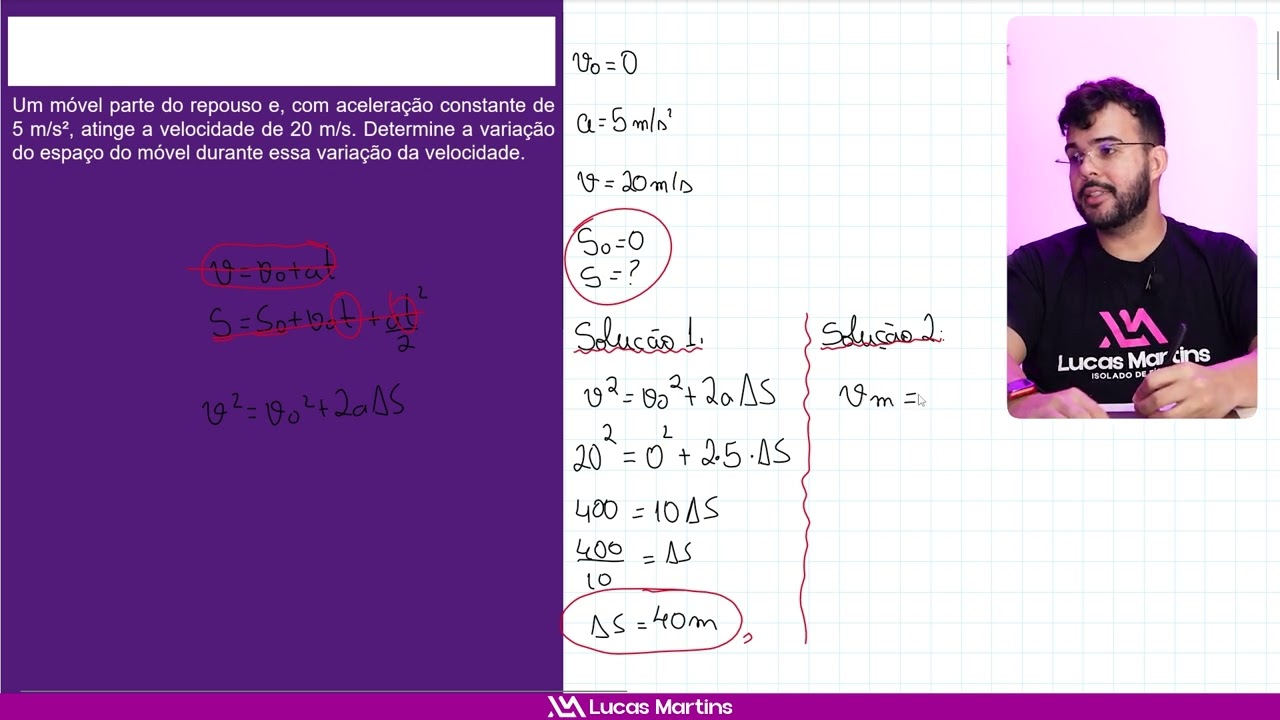 Um móvel parte do repouso e, com aceleração constante de
5 m/s², atinge a velocidade de 20 m/s. Determine a variação
do espaço do móvel durante essa variação da velocidade.
v = v₀ + at
S = S₀ + v₀t + at²/2
v² = v₀² + 2aΔS
v₀ = 0
a = 5 m/s²
v = 20 m/s
S₀ = 0
S = ?
Solução 1:
v² = v₀² + 2aΔS
20² = 0² + 2.5.ΔS
400 = 10ΔS
400/10 = ΔS
ΔS = 40m,
Solução 2:
vm =
Lucas Martins
ISOLADO DE FÍ
Lucas Martins